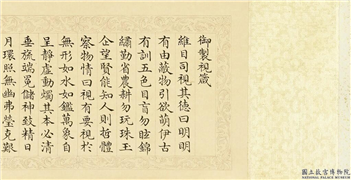 御製視箴
維目司視其德曰明明
有由蔽物引欲萌伊古
有訓五色目盲勿眩錦
繡勤省農耕勿玩珠玉
企望賢能知人則哲體
察物情曰視有要視於
無形如水如鑑萬象自
呈靜虛動燭其本必清
垂旒端冕儲神致精日
月環照無幽弗瑩克艱
國立故宮博物院
NATIONAL PALACE MUSEUM